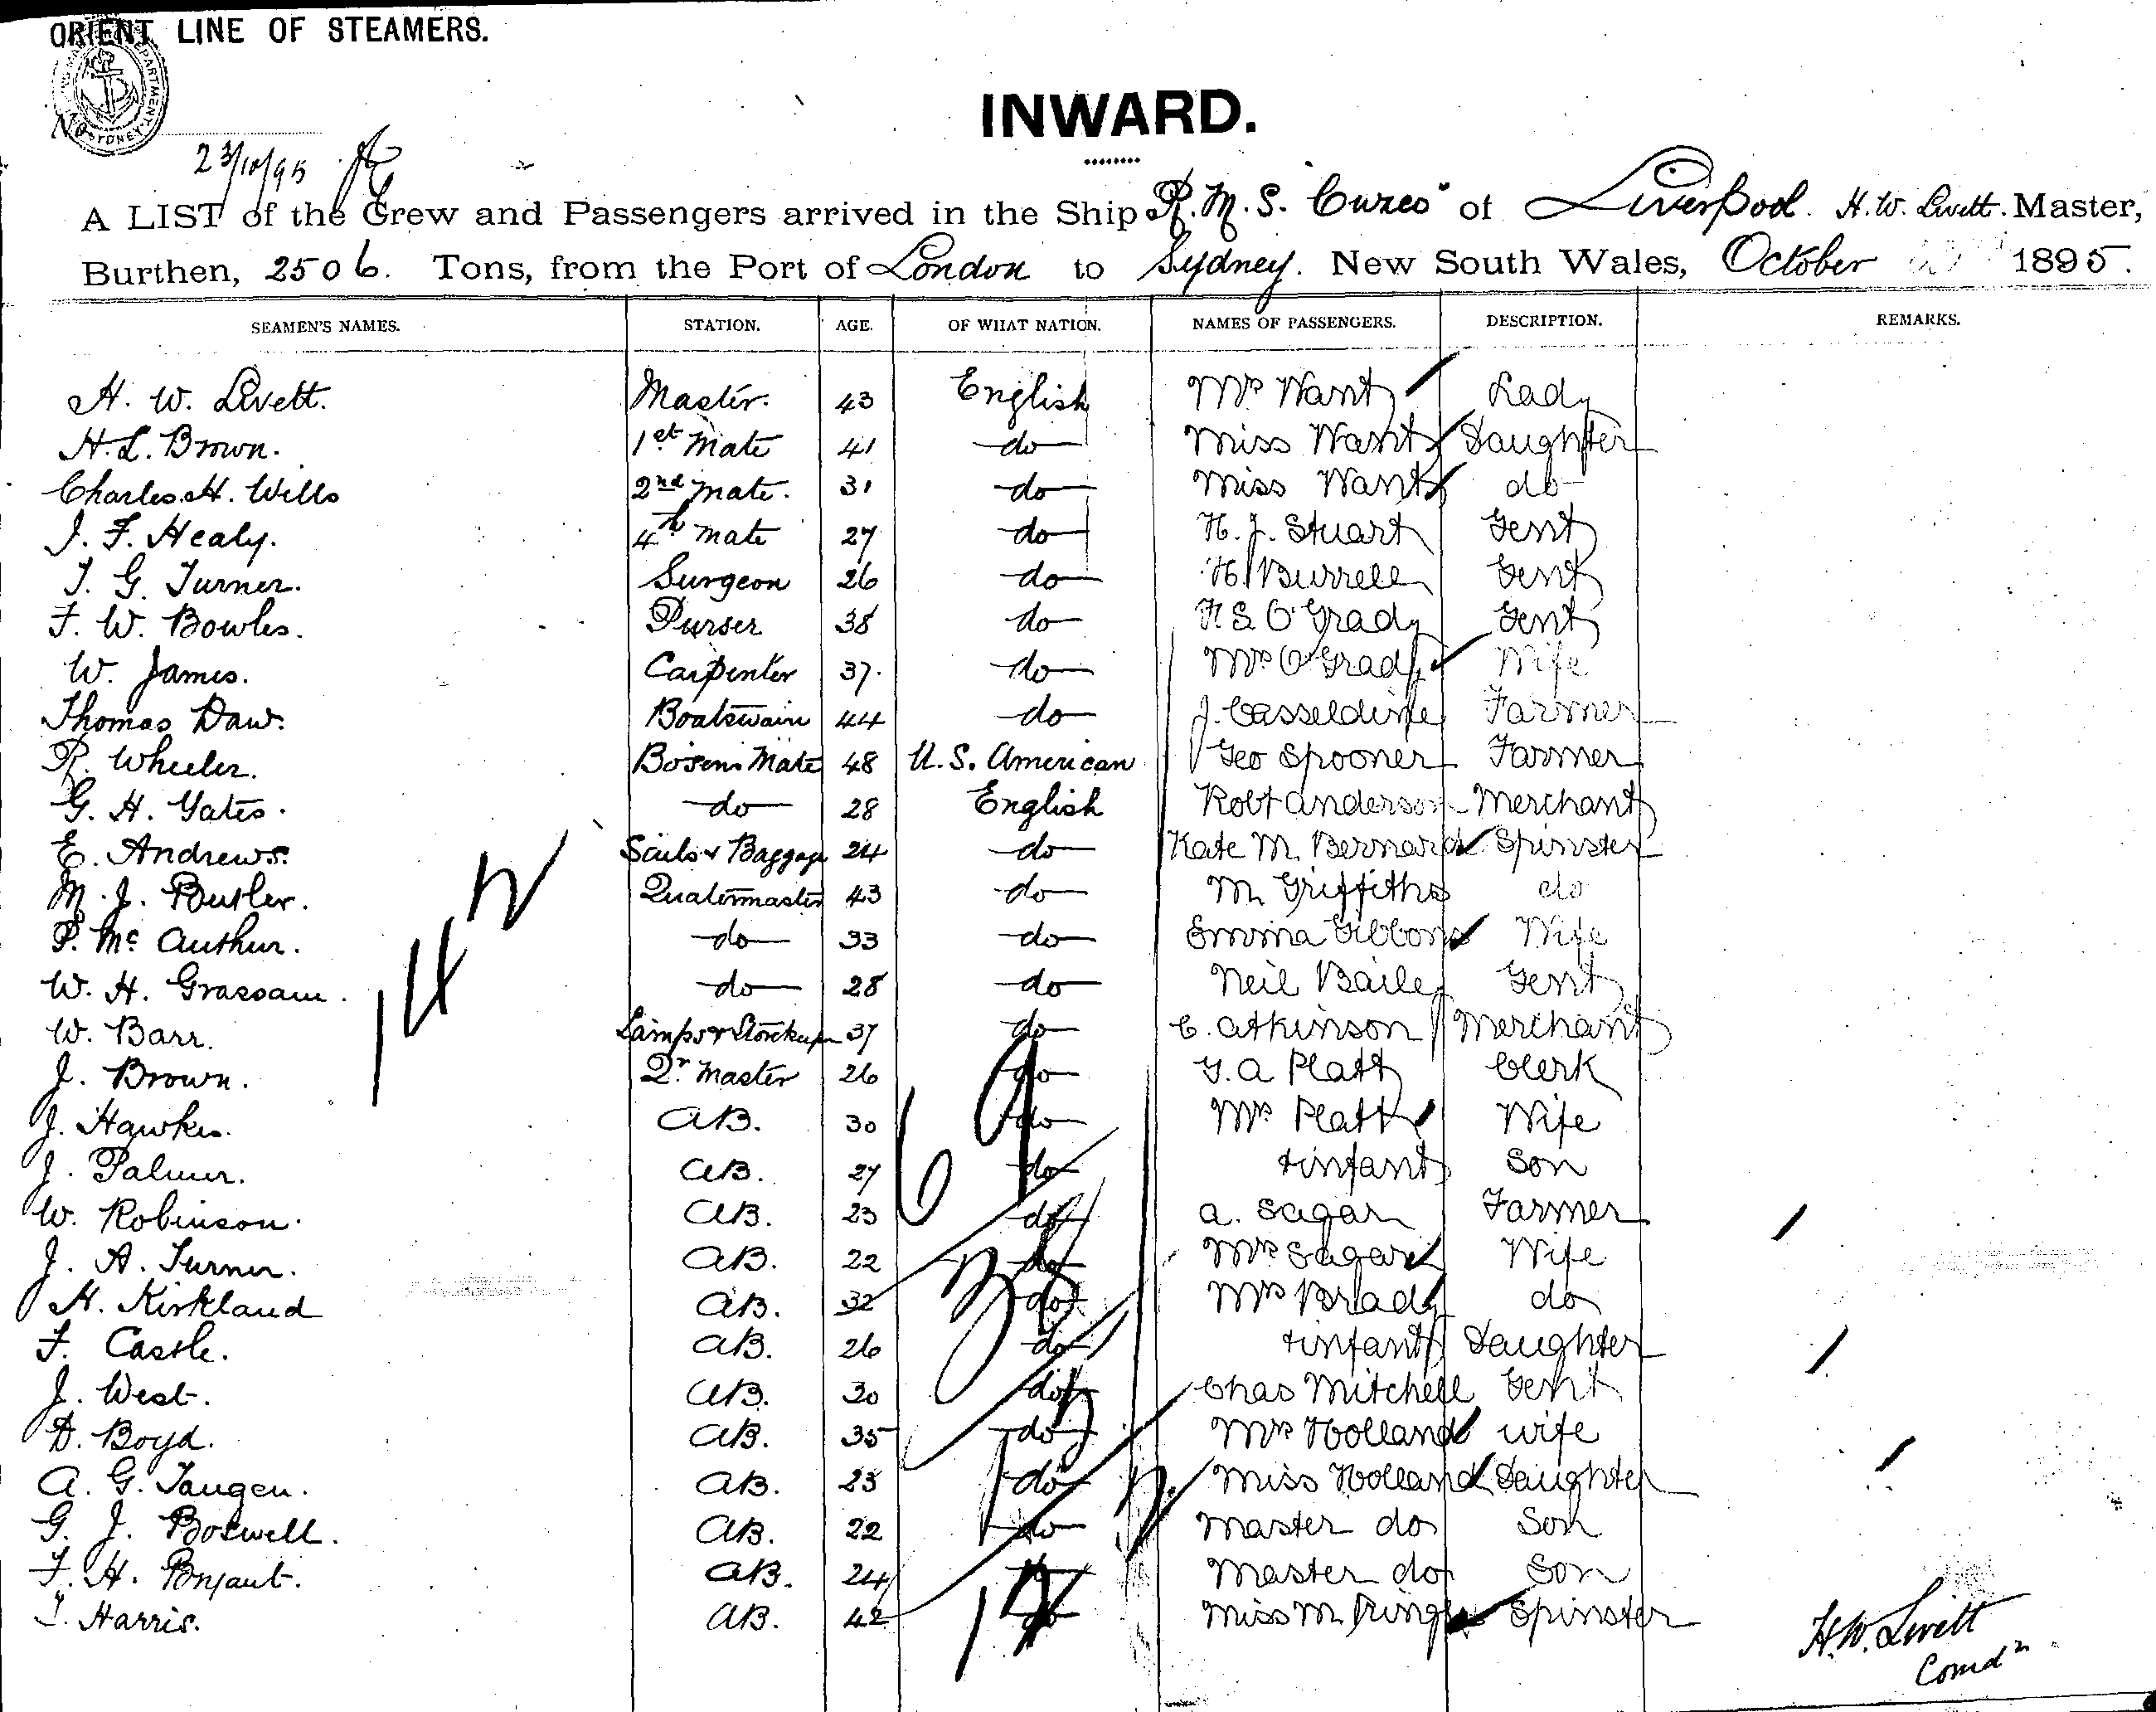 ORIENT LINE OF STEAMERS.
SYDNEY
No
INWARD.
23/10/95
A LIST of the Crew and Passengers arrived in the Ship R.M.S. "Cuzco" of Liverpool. H.W. Livett. Master,
Burthen, 2506. Tons, from the Port of London to Sydney. New South Wales, October 1895.
SEAMEN'S NAMES. STATION. AGE. OF WHAT NATION. NAMES OF PASSENGERS. DESCRIPTION. REMARKS.
H. W. Livett. Master. 43 English Mrs Want Lady
H. L. Brown. 1st Mate 41 do Miss Want Daughter
Charles H. Wills 2nd Mate. 31 do Miss Want do
J. F. Healy. 4th Mate 27 do H. J. Stuart Gent
T. G. Turner. Surgeon 26 do H. Burrell Gent
F. W. Bowles. Purser 38 do O'Grady Gent
W. James. Carpenter 37. do Mrs O'Grady Wife
Thomas Daw. Boatswain 44 do J. Casseldine Farmer
R. Wheeler. Bosens Mate 48 U.S. American Geo Spooner Farmer
G. H. Yates. do 28 English Robt Anderson Merchant
E. Andrews. Sails & Baggage 24 do Kate M. Bernard Spinster
M. J. Butler. Quatermaster 43 do M Griffiths do
P. Mc Authur. do 33 do Emma Gibbons Wife
W. H. Grassam. do 28 do Neil Bailey Gent
W. Barr. Lamps & Storekeeper 37 do C. Atkinson Merchant
J. Brown. Qr Master 26 do G. A Platt Clerk
J. Hawkes. AB. 30 do Mrs Platt Wife
J. Palmer. AB. 27 do + infant Son
W. Robinson. AB. 23 do A. Sagar Farmer
J. A. Turner. AB. 22 do Mrs Sagar Wife
H. Kirkland AB. 32 do Mrs Brady do
F. Castle. AB. 26 do + infant Daughter
J. West. AB. 30 do Chas Mitchell Gent
D. Boyd. AB. 35 do Mrs Holland wife
A. G. Taugen. AB. 23 do Miss Holland Daughter
G. J. Boswell. AB. 22 do Master do Son
F. H. AB. 24 do Master do Son
Harris. AB. 42 do Miss M. Pringle Spinster
142
69
H.W. Livett
Comdr